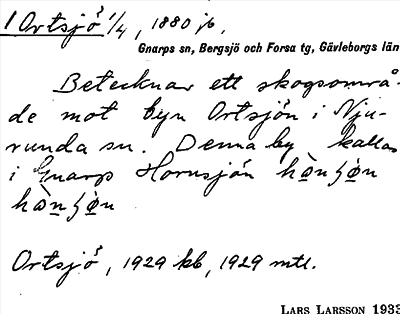 1 Ortsjö 1/4, 1880 jb.
Gnarps sn, Bergsjö och Forsa tg, Gävleborgs län
Betecknar ett skogsområ-
de mot byn Ortsjön i Nju-
runda sn. Denna by kallas
i Gnarp Hornsjön
Ortsjö, 1929 kb, 1929 mtl.
LARS LARSSON 1933